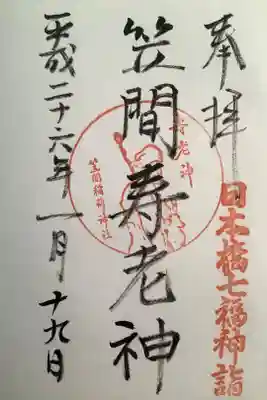 奉拝
日本橋七福神詣
笠間寿老神
寿老神
笠間稲荷神社
平成二十六年一月十九日